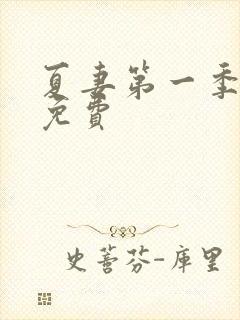 夏妻第一季
免費
史蒈芬-庫里